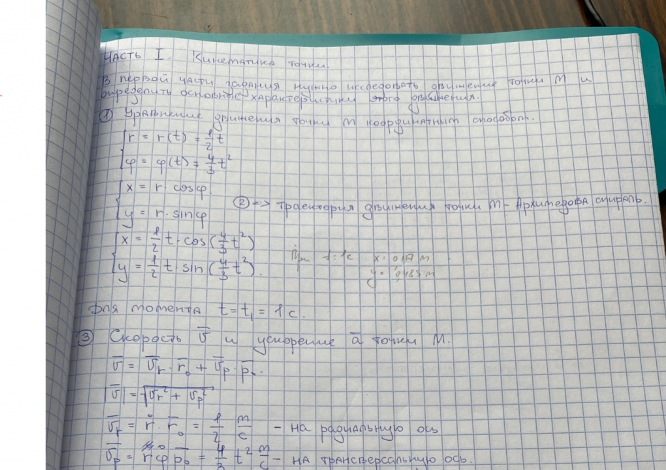 Часть I. Кинематика точки.
В первой части задания нужно исследовать движение точки М и
определить основные характеристики этого движения.
① Уравнение движения точки М координатным способом.
{ r = r(t) = 1/2 t
{ φ = φ(t) = 4/3 t²
{ x = r · cosφ
{ y = r · sinφ
② => траектория движения точки М - Архимедова спираль.
{ x = 1/2 t · cos(4/3 t²)
{ y = 1/2 t · sin(4/3 t²)
При t=1с x = 0,117 м
y = 0,485 м
Для момента t = t₁ = 1 с.
③ Скорость v̄ и ускорение ā точки М.
v̄ = v̄r · r̄₀ + v̄p · p̄₀
|v̄| = √(vr² + vp²)
v̄r = ṙ · r̄₀ = 1/2 м/с - на радиальную ось
v̄p = rφ̇ p̄₀ = 4/3 t² м/с - на трансверсальную ось.